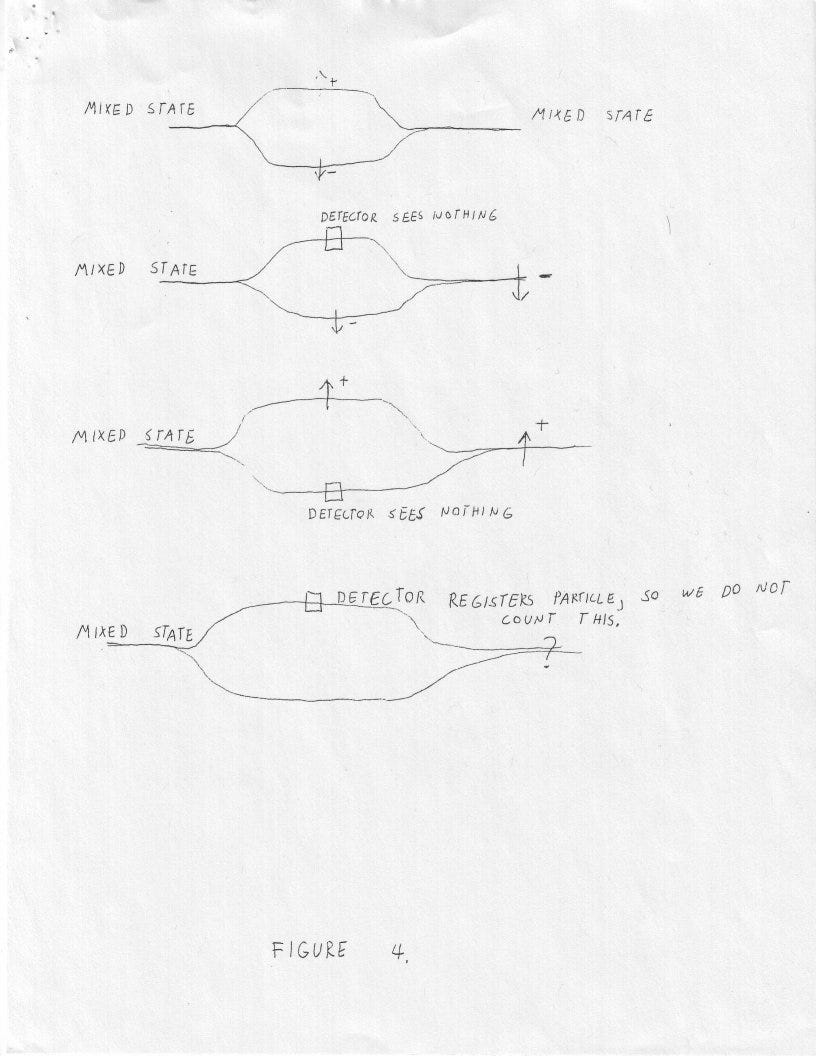 +
MIXED STATE
MIXED STATE
-
DETECTOR SEES NOTHING
MIXED STATE
-
-
+
+
MIXED STATE
DETECTOR SEES NOTHING
DETECTOR REGISTERS PARTICLE, SO WE DO NOT
COUNT THIS.
MIXED STATE
?
FIGURE 4.